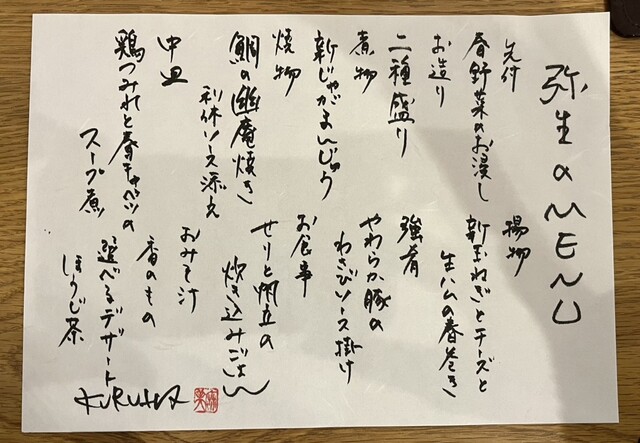 弥生のMENU
先付
春野菜のお浸し
お造り
二種盛り
煮物
新じゃがまんじゅう
焼物
鯛の幽庵焼き
利休ソース添え
中皿
鶏つみれと春キャベツの
スープ煮
揚物
新玉ねぎとチーズと
生ハムの春巻き
強肴
やわらか豚の
わさびソース掛け
お食事
せりと帆立の
炊き込みごはん
おみそ汁
香のもの
選べるデザート
ほうじ茶